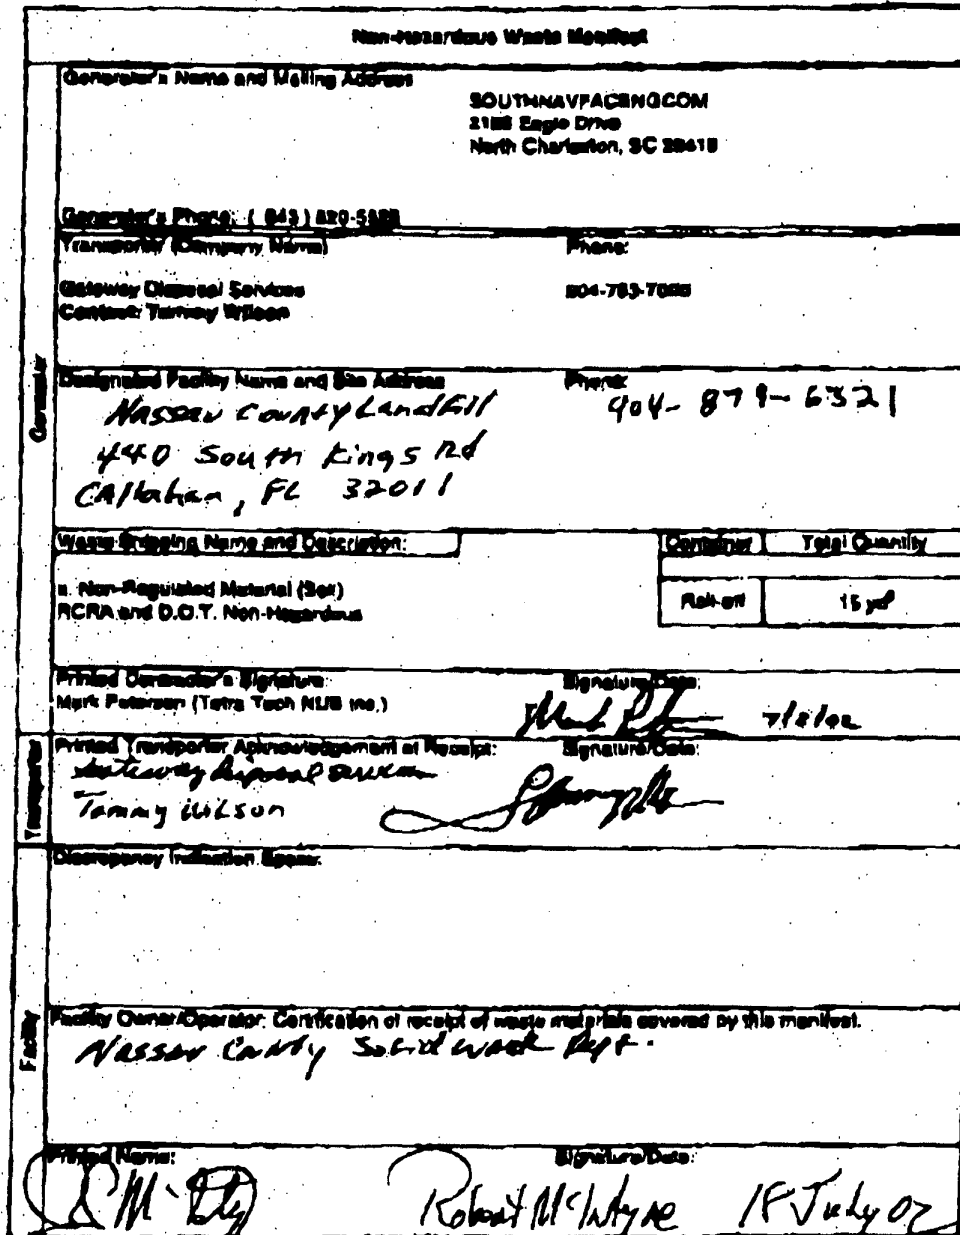 Non-Hazardous Waste Manifest
Generator's Name and Mailing Address
SOUTHNAVFACENGCOM
Eagle Drive
North Charleston, SC
Generator's Phone: ( 843 )
Transporter (Company Name)
Phone:
Gateway Disposal Services
Contact: Tammy Wilson
904-783-
Generator
Designated Facility Name and Site Address
Phone:
Nassau County Landfill
904-879-6321
440 South Kings Rd
Callahan, FL 32011
Waste Shipping Name and Description:
Container
Total Quantity
a. Non-Regulated Material (Soil)
RCRA and D.O.T. Non-Hazardous
Roll-off
15 yd³
Printed Generator's Signature
Signature/Date:
Mark Peterson (Tetra Tech NUS Inc.)
Transporter
Printed Transporter Acknowledgement of Receipt:
Signature/Date:
Gateway Disposal Services
Tammy Wilson
Discrepancy Indication Space:
Facility
Facility Owner/Operator: Certification of receipt of waste materials covered by this manifest.
Nassau County Solid Waste Dept.
Printed Name:
Signature/Date:
Robert McIntyre 18 July 02